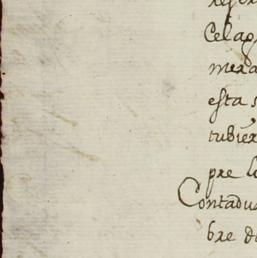 Celap
mera
esta s
tubier
pre l
Contadu
bre d